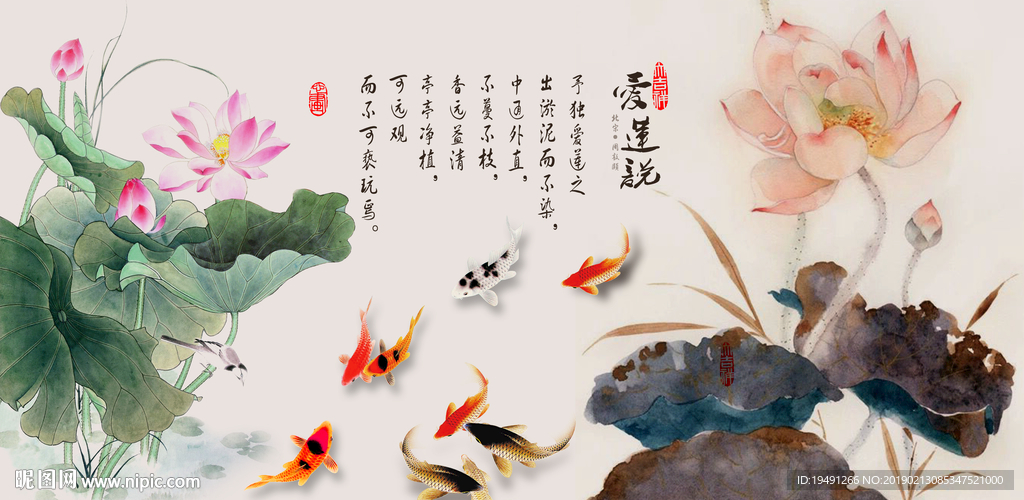 愛莲説
北宋•周敦頤
予独爱莲之
出淤泥而不染，
中通外直，
不蔓不枝，
香远益清
亭亭净植，
可远观
而不可亵玩焉。
昵图网 www.nipic.com
ID:19491266 NO:20190213085347521000